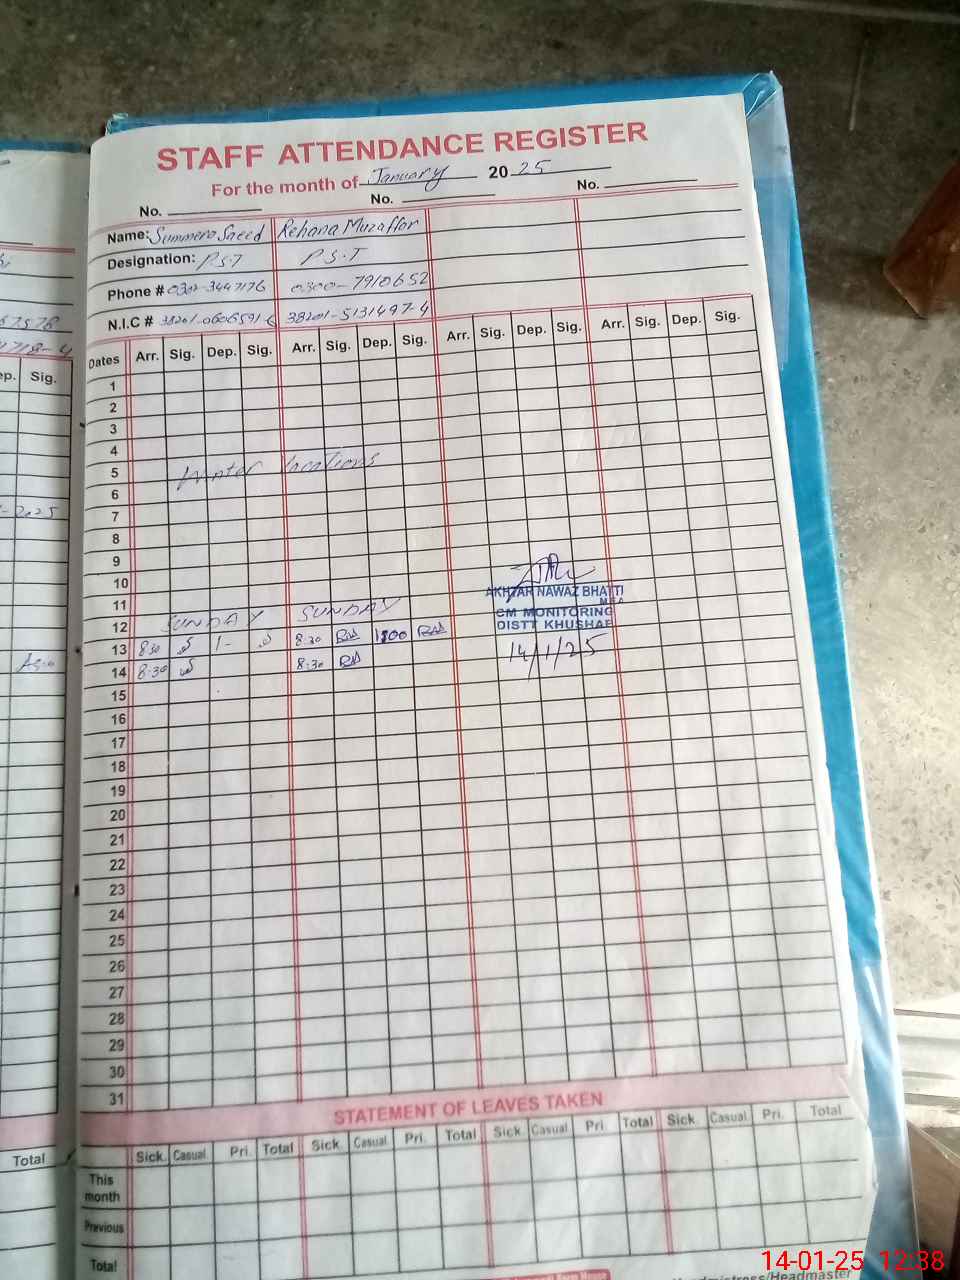 STAFF ATTENDANCE REGISTER
For the month of January 2025
No. No. No.
Name: Summera Saeed Rehana Muzaffar
Designation: P.S.T P.S.T
Phone # 0300-7910652
N.I.C # 38201-5131497-4
Dates Arr. Sig. Dep. Sig. Arr. Sig. Dep. Sig. Arr. Sig. Dep. Sig. Arr. Sig. Dep. Sig.
1
2
3
4
5 Winter Vacations
6
7
8
9
10
11
12 SUNDAY SUNDAY
13 8:30 1- 8:30
14 8:30 8:30
15
16
17
18
19
20
21
22
23
24
25
26
27
28
29
30
31
AKHTAR NAWAZ BHATTI
MEA
CM MONITORING
DISTT KHUSHAB
14/1/25
STATEMENT OF LEAVES TAKEN
Sick. Casual Pri. Total Sick. Casual Pri. Total Sick. Casual Pri. Total Sick. Casual Pri. Total
This month
Previous
Total
ep. Sig.
Total
14-01-25 12:38